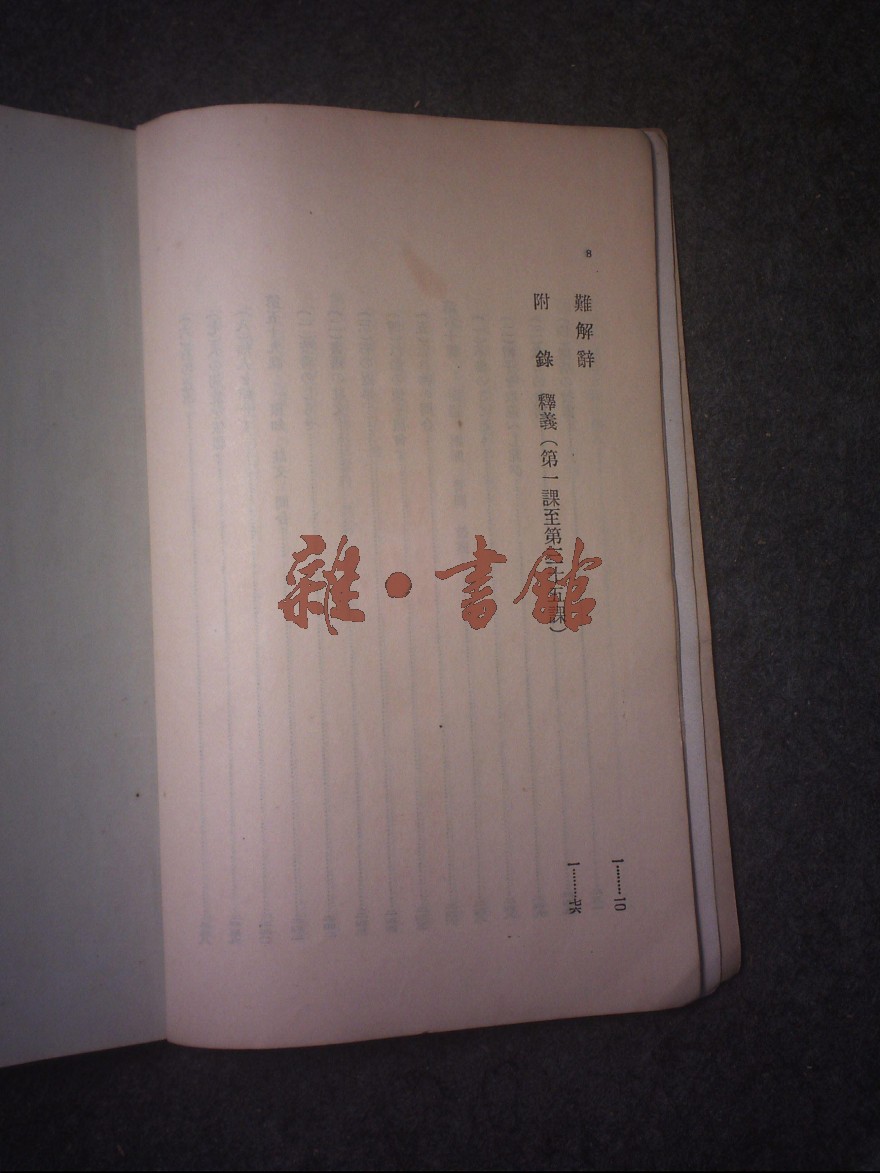 8
難解辭 1……10
附錄 釋義(第一課至第三十五課) 一……七六
雜·書館